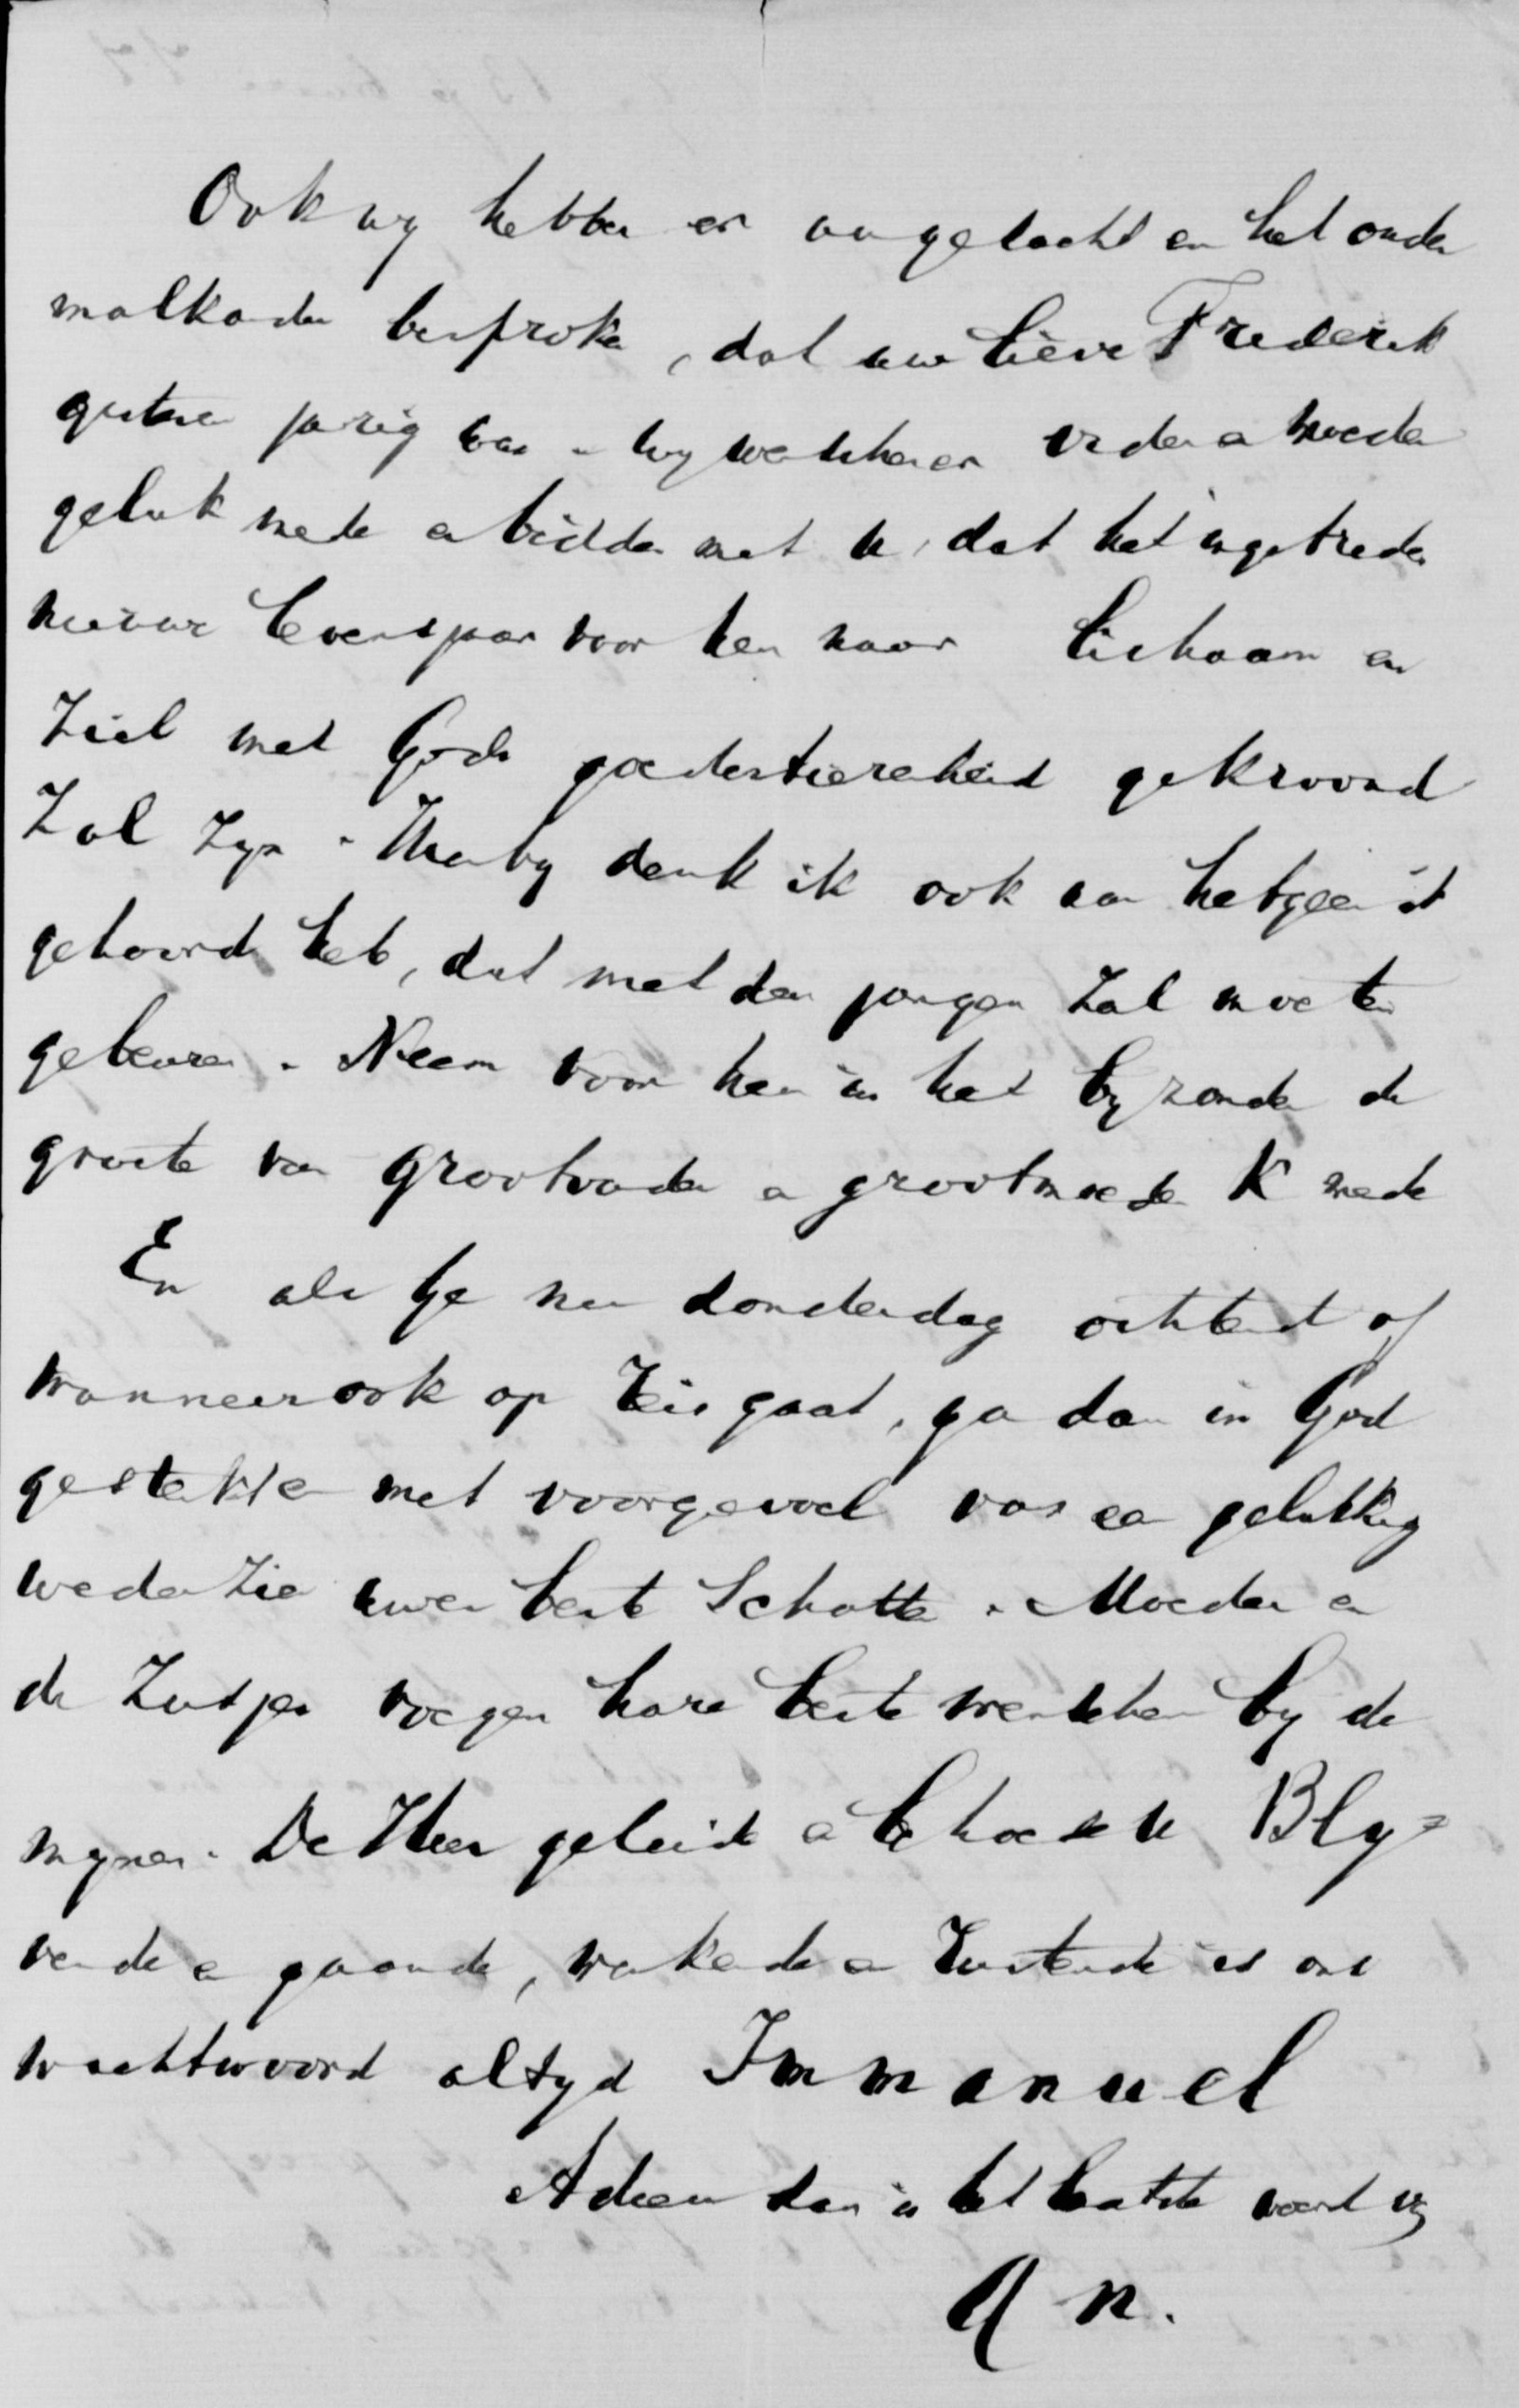 Ook wy hebben er aan gedacht en het onder
malkander besproken, dat uw lieve Frederik
gisteren jarig was. Wy wenschen er vader en moeder
geluk mede en bidden met u, dat het ingetreden
nieuwe levensjaar voor hem naar lichaam en
ziel met Gods goedertierenheid gekroond
zal zyn. Hierby denk ik ook aan hetgeen ik
gehoord heb, dat met den jongen zal moeten
gebeuren. Neem voor hem in het byzonder de
groete van Grootvader en grootmoeder K mede
En als Ge nu donderdag ochtend of
wanneer ook op reis gaat, ga dan in God
gesterkt en met voorgevoel van een gelukkig
wederzien uwer beste Schatten. Moeder en
de Zusjes voegen hare beste wenschen by de
mynen. De Heer geleide en behoede u Bly=
vende en gaande, wakende en rustende is ons
wachtwoord altyd Immanuel
Adieu dan is het laatste woord van